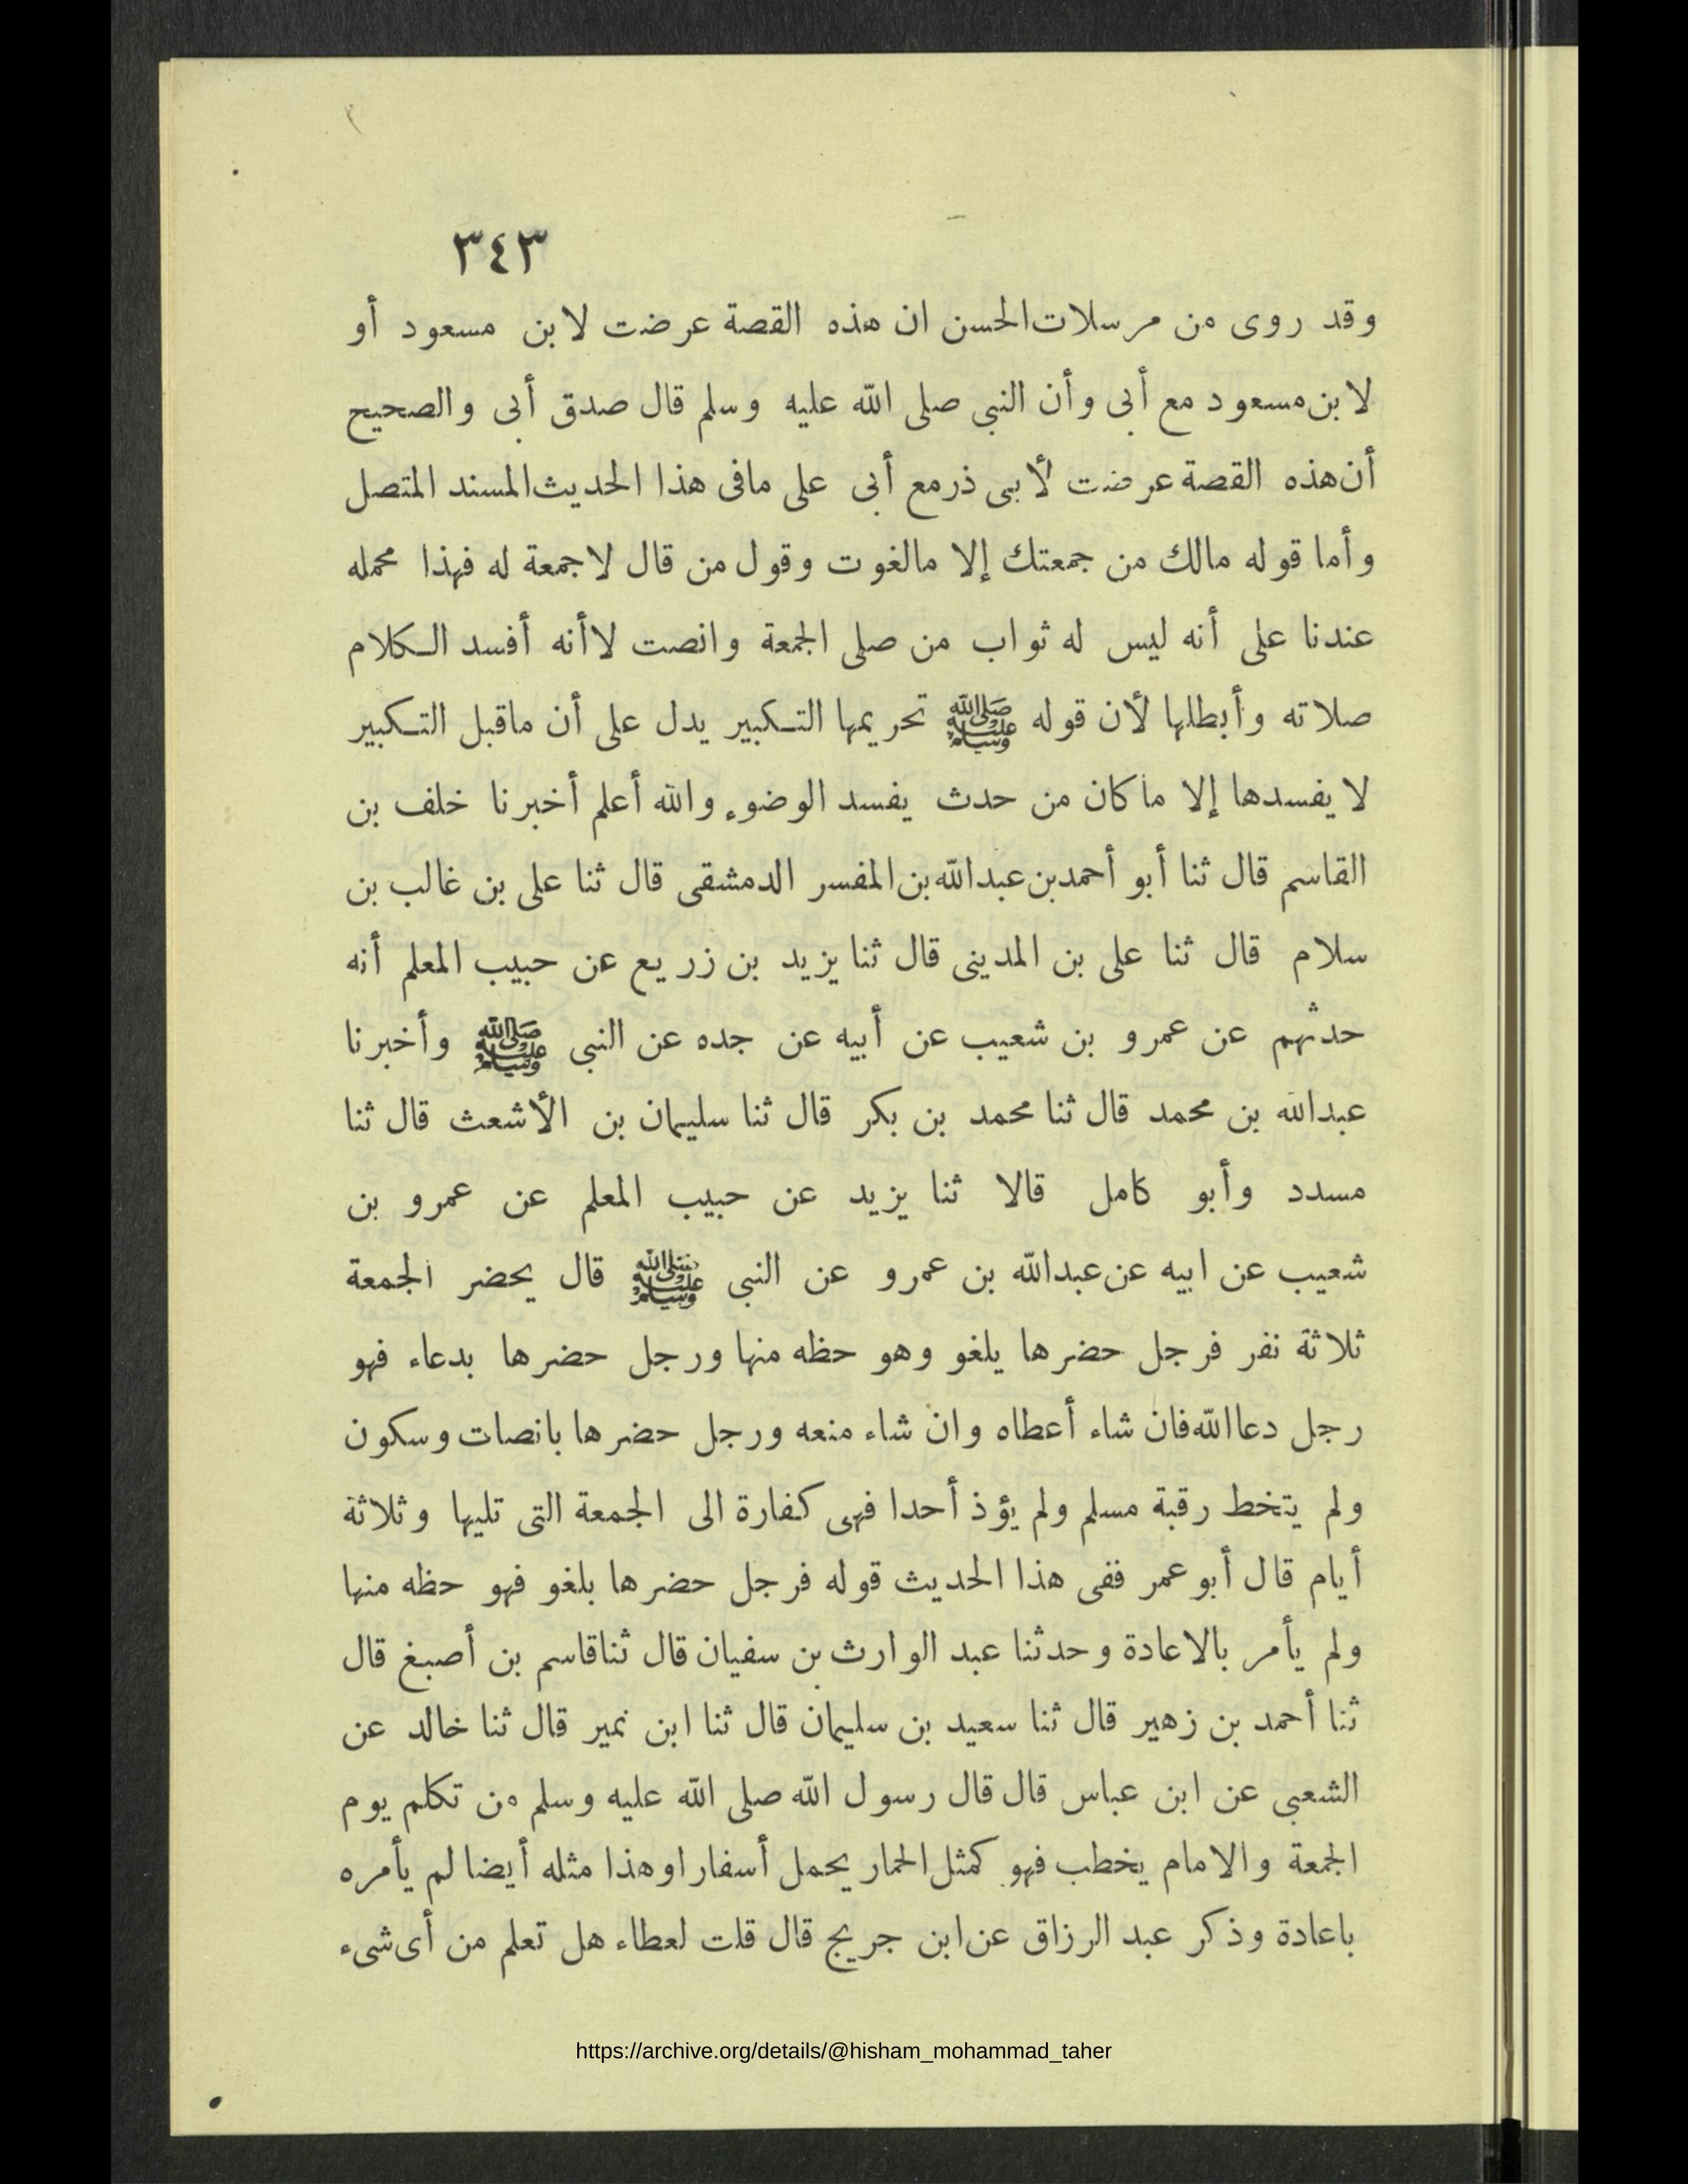 ٣٤٣
وقد روى من مرسلات الحسن ان هذه القصة عرضت لابن مسعود أو
لابن مسعود مع أبى وأن النبى صلى الله عليه وسلم قال صدق أبى والصحيح
أن هذه القصة عرضت لأبى ذر مع أبى على مافى هذا الحديث المسند المتصل
وأما قوله مالك من جمعتك إلا مالغوت وقول من قال لاجمعة له فهذا محمله
عندنا على أنه ليس له ثواب من صلى الجمعة وانصت لاأنه أفسد الكلام
صلاته وأبطلها لأن قوله ﷺ تحريمها التكبير يدل على أن ماقبل التكبير
لا يفسدها إلا ما كان من حدث يفسد الوضوء والله أعلم أخبرنا خلف بن
القاسم قال ثنا أبو أحمد بن عبدالله بن المفسر الدمشقى قال ثنا على بن غالب بن
سلام قال ثنا على بن المدينى قال ثنا يزيد بن زريع عن حبيب المعلم أنه
حدثهم عن عمرو بن شعيب عن أبيه عن جده عن النبى ﷺ وأخبرنا
عبدالله بن محمد قال ثنا محمد بن بكر قال ثنا سليمان بن الأشعث قال ثنا
مسدد وأبو كامل قالا ثنا يزيد عن حبيب المعلم عن عمرو بن
شعيب عن ابيه عن عبدالله بن عمرو عن النبى ﷺ قال يحضر الجمعة
ثلاثة نفر فرجل حضرها يلغو وهو حظه منها ورجل حضرها بدعاء فهو
رجل دعا الله فان شاء أعطاه وان شاء منعه ورجل حضرها بانصات وسكون
ولم يتخط رقبة مسلم ولم يؤذ أحدا فهى كفارة الى الجمعة التى تليها وثلاثة
أيام قال أبو عمر ففى هذا الحديث قوله فرجل حضرها بلغو فهو حظه منها
ولم يأمر بالاعادة وحدثنا عبد الوارث بن سفيان قال ثنا قاسم بن أصبغ قال
ثنا أحمد بن زهير قال ثنا سعيد بن سليمان قال ثنا ابن نمير قال ثنا خالد عن
الشعبى عن ابن عباس قال قال رسول الله صلى الله عليه وسلم من تكلم يوم
الجمعة والامام يخطب فهو كمثل الحمار يحمل أسفارا وهذا مثله أيضا لم يأمره
باعادة وذكر عبد الرزاق عن ابن جريج قال قلت لعطاء هل تعلم من أى شىء
https://archive.org/details/@hisham_mohammad_taher